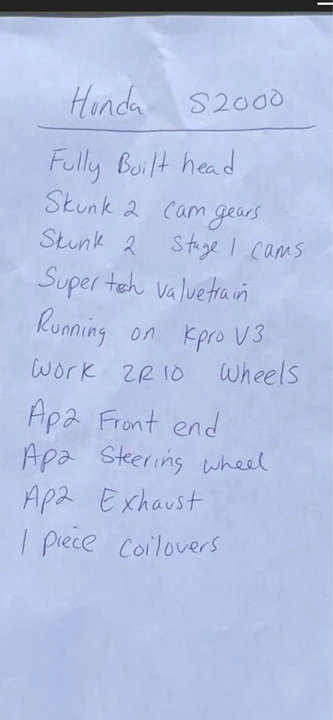 Honda S2000
Fully Built head
Skunk 2 cam gears
Skunk 2 Stage 1 cams
Supertech valvetrain
Running on Kpro V3
Work ZR10 Wheels
Ap2 Front end
Ap2 Steering wheel
AP2 Exhaust
1 piece coilovers